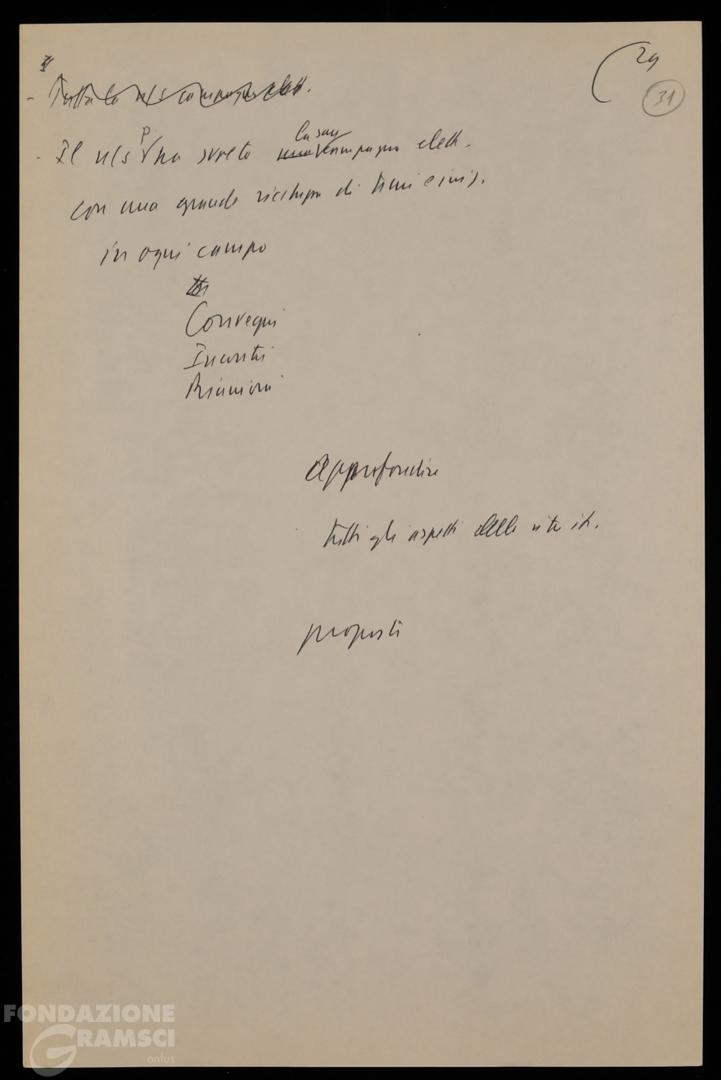 29
31
- Tutta la ns campagna elett.
- Il ns P ha svolto la sua campagna elett.
con una grande ricchezza di temi e iniz.
in ogni campo
Convegni
Incontri
Riunioni
Approfondire
tutti gli aspetti della vita it.
proposti
FONDAZIONE
GRAMSCI
onlus